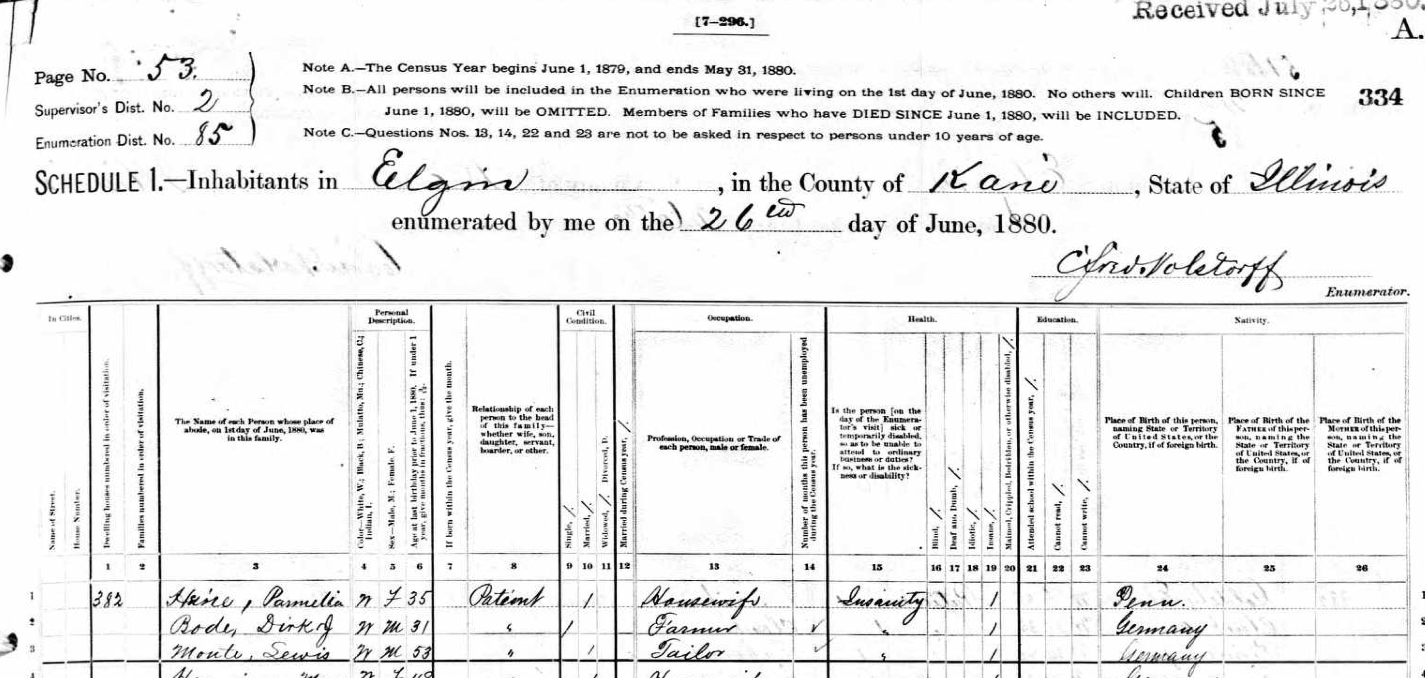 [7–296.]
Received July 26, 1880.
A.
Page No. 53.
Supervisor's Dist. No. 2
Enumeration Dist. No. 85
Note A.—The Census Year begins June 1, 1879, and ends May 31, 1880.
Note B.—All persons will be included in the Enumeration who were living on the 1st day of June, 1880. No others will. Children BORN SINCE
June 1, 1880, will be OMITTED. Members of Families who have DIED SINCE June 1, 1880, will be INCLUDED.
Note C.—Questions Nos. 13, 14, 22 and 23 are not to be asked in respect to persons under 10 years of age.
334
SCHEDULE 1.—Inhabitants in Elgin, in the County of Kane, State of Illinois
enumerated by me on the 26th day of June, 1880.
Volstorff
Enumerator.
In Cities. Personal Description. Civil Condition. Occupation. Health. Education. Nativity.
Name of Street.
House Number.
Dwelling houses numbered in order of visitation.
Families numbered in order of visitation.
The Name of each Person whose place of abode, on 1st day of June, 1880, was in this family.
Color—White, W.; Black, B.; Mulatto, Mu.; Chinese, C.; Indian, I.
Sex—Male, M.; Female, F.
Age at last birthday prior to June 1, 1880. If under 1 year, give months in fractions, thus:
If born within the Census year, give the month.
Relationship of each person to the head of this family—whether wife, son, daughter, servant, boarder, or other.
Single, /.
Married, /.
Widowed, /. Divorced, D.
Married during Census year, /.
Profession, Occupation or Trade of each person, male or female.
Number of months this person has been unemployed during the Census year.
Is the person [on the day of the Enumerator's visit] sick or temporarily disabled, so as to be unable to attend to ordinary business or duties? If so, what is the sickness or disability?
Blind, /.
Deaf and Dumb, /.
Idiotic, /.
Insane, /.
Maimed, Crippled, Bedridden, or otherwise disabled, /.
Attended school within the Census year, /.
Cannot read, /.
Cannot write, /.
Place of Birth of this person, naming State or Territory of United States, or the Country, if of foreign birth.
Place of Birth of the FATHER of this person, naming the State or Territory of United States, or the Country, if of foreign birth.
Place of Birth of the MOTHER of this person, naming the State or Territory of United States, or the Country, if of foreign birth.
1 2 3 4 5 6 7 8 9 10 11 12 13 14 15 16 17 18 19 20 21 22 23 24 25 26
1 382 Parmelia W F 35 Patient / Housewife Insanity / Penn. 1
2 Bode, Dirk J W M 31 " / Farmer ✓ " / Germany 2
3 Monte, Lewis W M 53 " / Tailor ✓ " / Germany 3
4